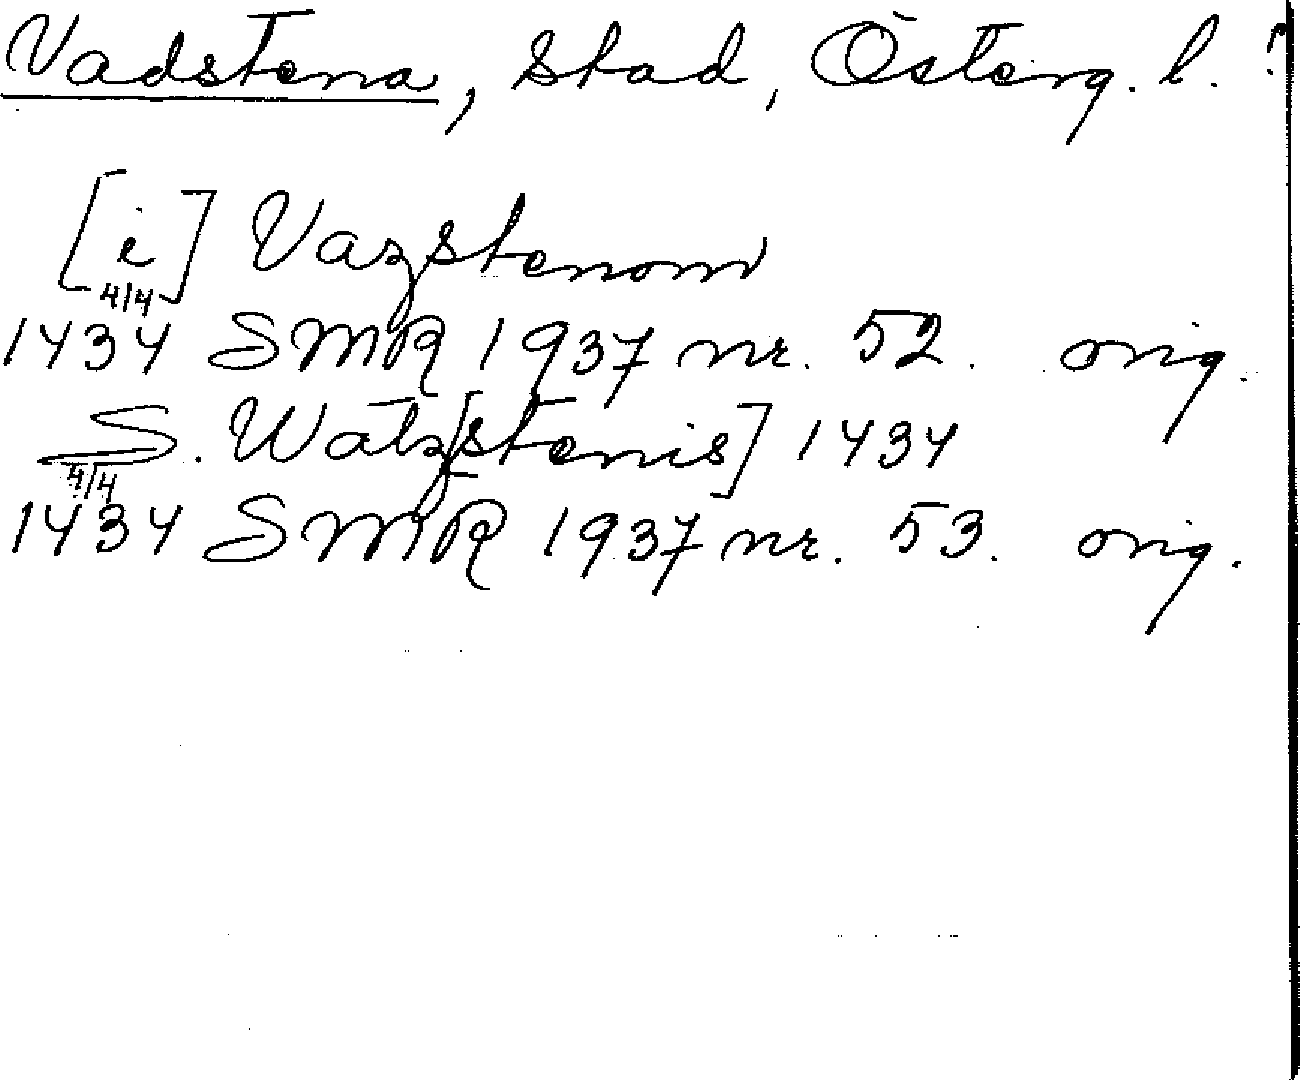 Vadstena, stad, Österg. l.
[i] Vazstenom
4/4
1434 SMR 1937 nr. 52. orig.
S. Watz[stenis] 1434
4/4
1434 SMR 1937 nr. 53. orig.